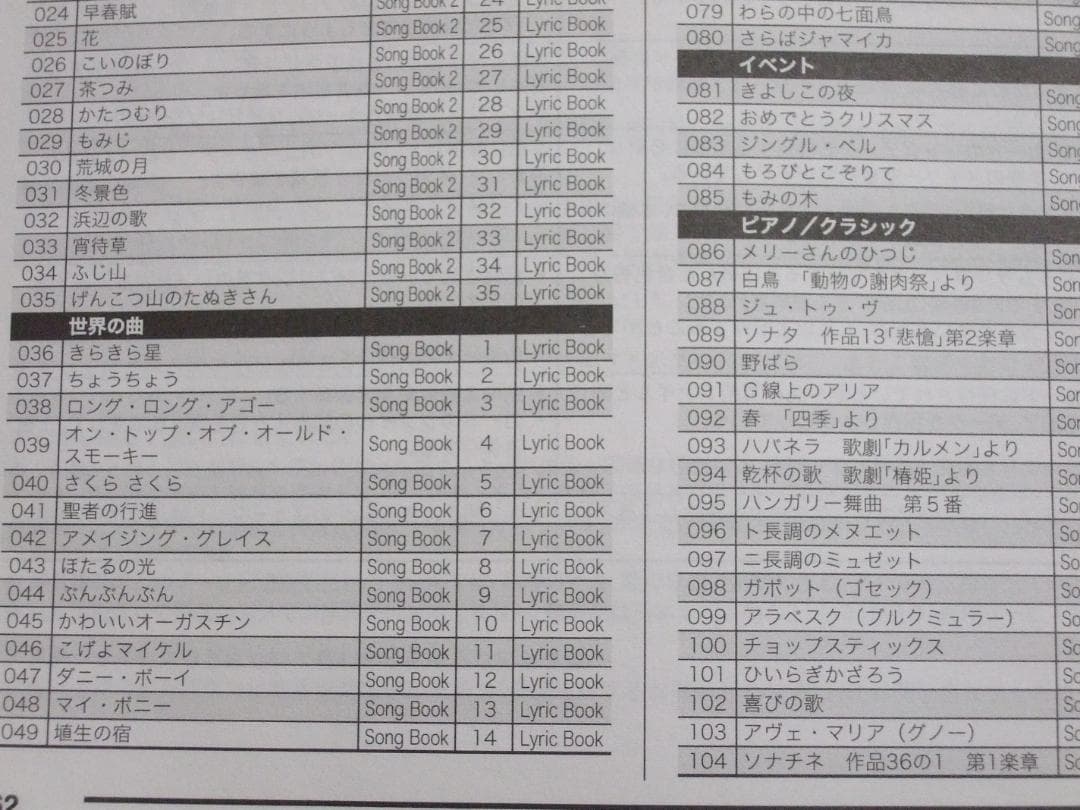 024 早春賦 Song Book 2 24 Lyric Book
025 花 Song Book 2 25 Lyric Book
026 こいのぼり Song Book 2 26 Lyric Book
027 茶つみ Song Book 2 27 Lyric Book
028 かたつむり Song Book 2 28 Lyric Book
029 もみじ Song Book 2 29 Lyric Book
030 荒城の月 Song Book 2 30 Lyric Book
031 冬景色 Song Book 2 31 Lyric Book
032 浜辺の歌 Song Book 2 32 Lyric Book
033 宵待草 Song Book 2 33 Lyric Book
034 ふじ山 Song Book 2 34 Lyric Book
035 げんこつ山のたぬきさん Song Book 2 35 Lyric Book
世界の曲
036 きらきら星 Song Book 1 Lyric Book
037 ちょうちょう Song Book 2 Lyric Book
038 ロング・ロング・アゴー Song Book 3 Lyric Book
039 オン・トップ・オブ・オールド・
スモーキー Song Book 4 Lyric Book
040 さくら さくら Song Book 5 Lyric Book
041 聖者の行進 Song Book 6 Lyric Book
042 アメイジング・グレイス Song Book 7 Lyric Book
043 ほたるの光 Song Book 8 Lyric Book
044 ぶんぶんぶん Song Book 9 Lyric Book
045 かわいいオーガスチン Song Book 10 Lyric Book
046 こげよマイケル Song Book 11 Lyric Book
047 ダニー・ボーイ Song Book 12 Lyric Book
048 マイ・ボニー Song Book 13 Lyric Book
049 埴生の宿 Song Book 14 Lyric Book
079 わらの中の七面鳥 Song
080 さらばジャマイカ Song
イベント
081 きよしこの夜 Song
082 おめでとうクリスマス Song
083 ジングル・ベル Song
084 もろびとこぞりて Song
085 もみの木 Song
ピアノ／クラシック
086 メリーさんのひつじ Son
087 白鳥 「動物の謝肉祭」より Son
088 ジュ・トゥ・ヴ Son
089 ソナタ 作品13「悲愴」第2楽章 Son
090 野ばら Son
091 G線上のアリア Son
092 春 「四季」より Son
093 ハバネラ 歌劇「カルメン」より So
094 乾杯の歌 歌劇「椿姫」より So
095 ハンガリー舞曲 第5番 So
096 ト長調のメヌエット So
097 ニ長調のミュゼット So
098 ガボット（ゴセック） So
099 アラベスク（ブルクミュラー） So
100 チョップスティックス So
101 ひいらぎかざろう So
102 喜びの歌 So
103 アヴェ・マリア（グノー） So
104 ソナチネ 作品36の1 第1楽章 So